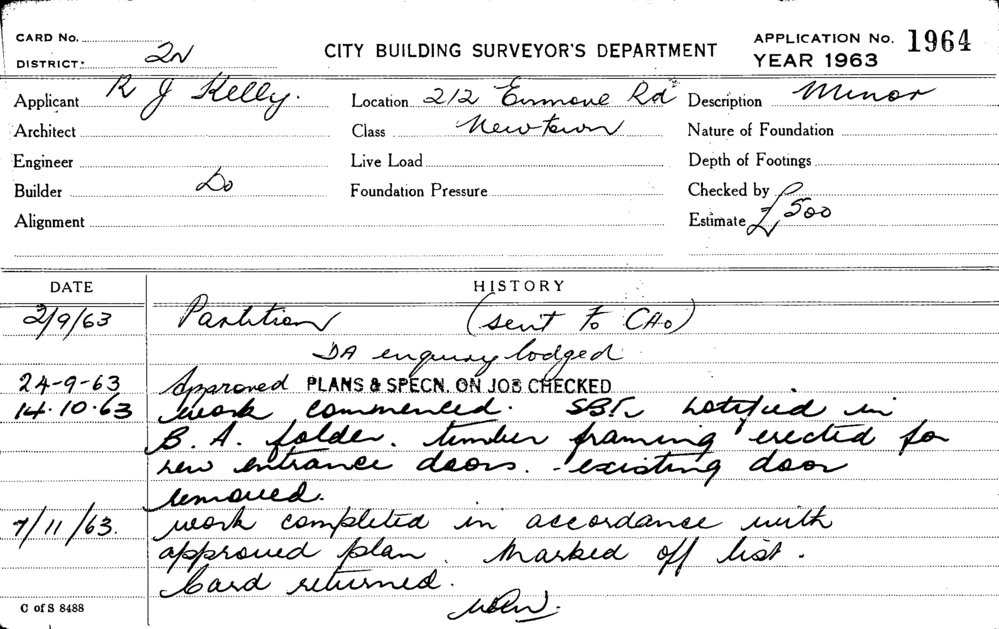 CARD No.
DISTRICT: 2N
CITY BUILDING SURVEYOR'S DEPARTMENT
APPLICATION No. 1964
YEAR 1963
Applicant R J Kelly. Location 212 Enmore Rd Description Minor
Architect Class Newtown Nature of Foundation
Engineer Live Load Depth of Footings
Builder Do Foundation Pressure Checked by
Alignment Estimate £500
DATE HISTORY
2/9/63 Partition (sent to CHO)
DA enquiry lodged
24-9-63 Approved PLANS & SPECN. ON JOB CHECKED
14.10.63 work commenced. notified in
B. A. folder. timber framing erected for
new entrance doors. - existing door
removed.
7/11/63. work completed in accordance with
approved plan. Marked off list.
Card returned.
C of S 8488